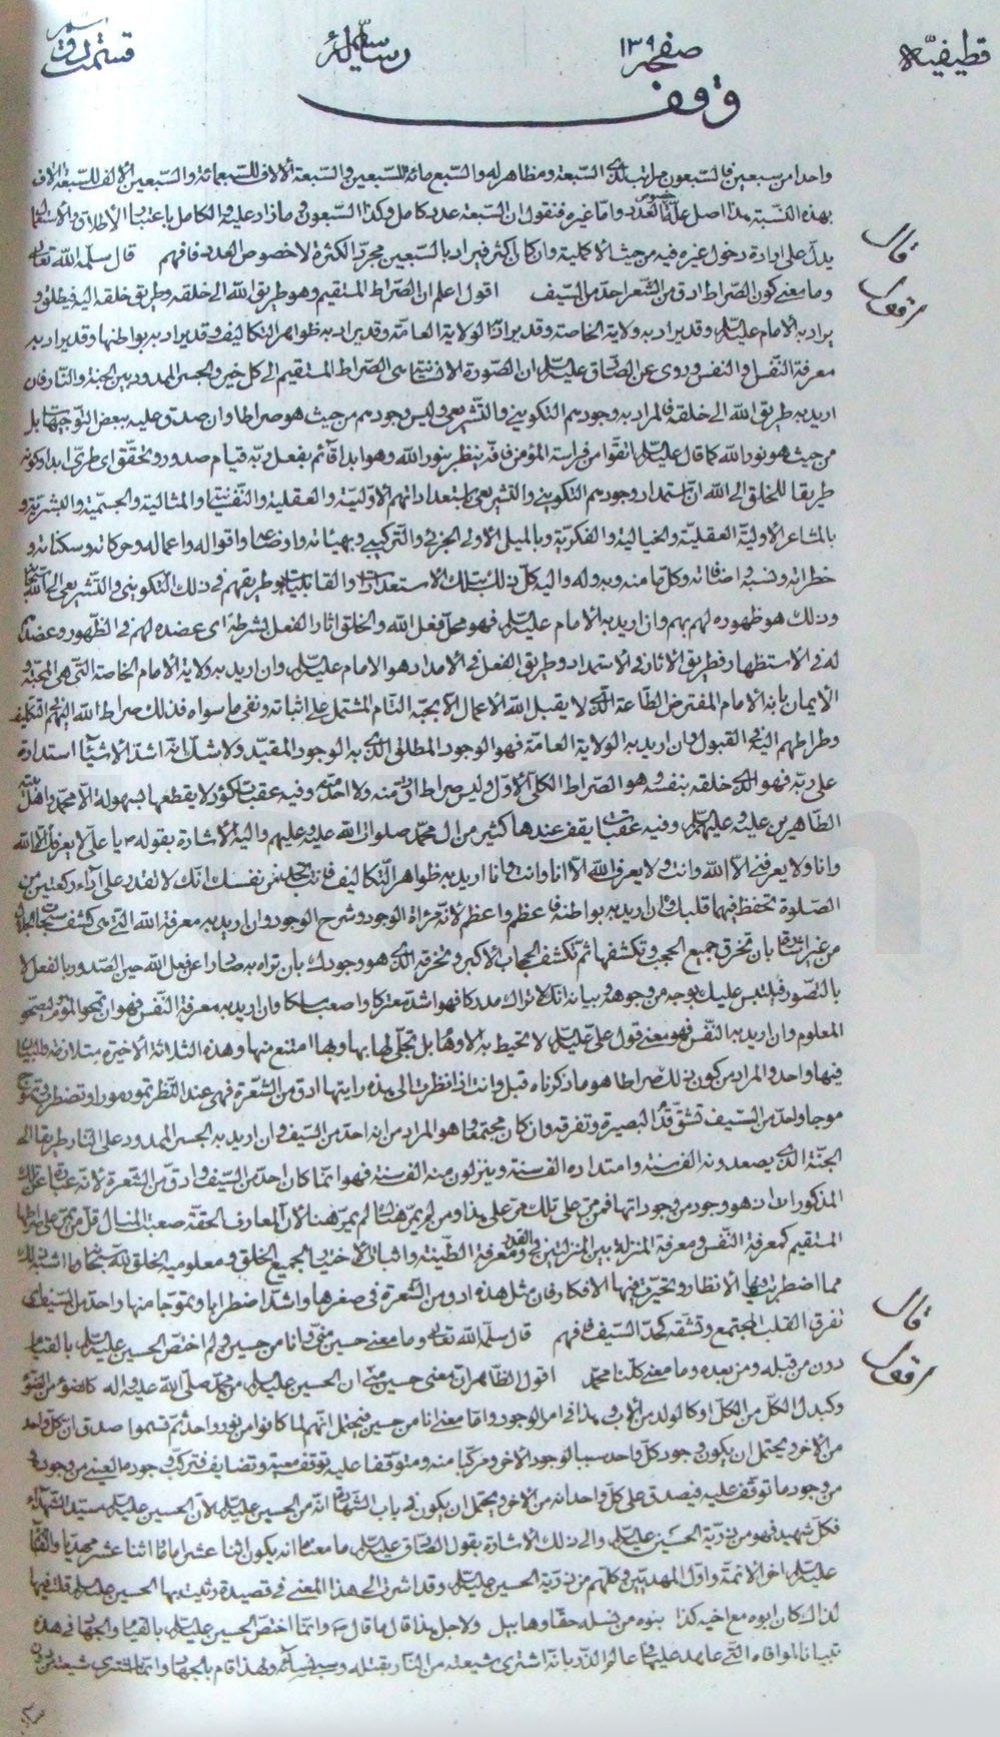 قطيفيّة صفحه ١٣٩ رسائله قسمت
وقف
واحدا من سبعين فالسّبعون مراتب تلك السّبعة ومظاهر له والسّبع مائة للسّبعين والسّبعة الالاف للسّبعمائة والسّبعين الالف للسّبعة الاف
بهذه النّسبة هذا اصل علّة خصوص العدد واما غيره فنقول ان السّبعة عدد كامل وكذا السّبعون وما زاد عليه والكامل باعتبار الاطلاق والاستعمال
يدلّ على ارادة دخول غيره فيه من حيث الاكملية وان كان اكثر فيراد بالسّبعين مجرّد الكثرة لا خصوص العدد فافهم قال سلّمه اللّه تعالى
قال
وما معنى كون الصّراط ادق من الشّعر احدّ من السّيف اقول اعلم ان الصّراط المستقيم وهو طريق اللّه الى خلقه وطريق خلقه اليه فيطلق و
اقول
يراد به الامام عليه السّلام وقد يراد به ولاية الخاصّة وقد يراد به الولاية العامّة وقد يراد به ظواهر التكاليف وقد يراد به بواطنها وقد يراد به
معرفة النّفس والنفس وروى عن الصّادق عليه السّلام ان الصّورة الانسانيّة هى الصّراط المستقيم الى كل خير والجسر الممدود بين الجنّة والنّار فان
اريد به طريق اللّه الى خلقه فالمراد به وجودهم التكوينى والتّشريعى وليس وجودهم من حيث هو صراطا وان صدق عليه ببعض التّوجيهات بل
من حيث هو نور اللّه كما قال عليه السّلام اتقوا من فراسة المؤمن فانّه ينظر بنور اللّه وهو ابدا قائم بفعل ربّه قيام صدور وتحقّق اى طرىّ ابدا وكونه
طريقا للخلق الى اللّه ان استمداد وجودهم التكوينى والتشريعى باستعداداتهم الاوّليّة والعقلية والنّفسيّة والمثالية والجسميّة والبشريّة و
بالمشاعر الاوليّة العقليّة والخيالية والفكريّة وبالميل الاولى الجزئى والتّركيبى وبهيئاته واوضاعه واقواله واعماله وحركاته وسكناته و
خطراته ونسبه واضافاته وكلّها منه وبه وله واليه كلّ ذلك بتلك الاستعدادات والقابليات وطريقهم فى ذلك التكوينى والتّشريعى الى اللّه سبحانه
وذلك هو ظهوره لهم بهم وان اريد به الامام عليه السّلام فهو محلّ فعل اللّه والخلق اثار الفعل بشرطه اى عضده لهم فى الظّهور وعضدا
له فى الاستظهار فطريق الاثار فى الاستمداد وطريق الفعل فى الامداد هو الامام عليه السّلام وان اريد به ولاية الامام الخاصة التّى هى المحبّة و
الايمان بانّه الامام المفترض الطّاعة الّذى لا يقبل اللّه الاعمال الا بحبّه التّام المشتمل على اثباته ونفى ما سواه فذلك صراط اللّه اليهم فى التكليف
وطراطهم اليه فى القبول وان اريد به الولاية العامّة فهو الوجود المطلق الّذى به الوجود المقيّد ولا شكّ انّه اشدّ الاشيآء استدارة
على ربّه فهو الّذى خلقه بنفسه وهو الصّراط الكلّى الاوّل وليس صراط ادقّ منه ولا احدّ منه وفيه عقبات كؤد لا يقطعها بسهولة الّا محمّد واهل بيته
الطّاهرين عليه وعليهم السّلام وفيه عقبات يقف عندها كثير من ال محمّد صلوات اللّه عليه وعليهم واليه الاشارة بقوله ص يا على لا يعرفك الّا اللّه
وانا ولا يعرفنى الّا اللّه وانت ولا يعرف اللّه الّا انا وانت وان اريد به ظواهر التّكاليف فانت تجد من نفسك انّك لا تقدر على اداء ركعتين من
الصّلوة تحفظ فيهما قلبك وان اريد به بواطنه فاعظم واعظم لانّه مرءاة الوجود وشرح الوجود وان اريد به معرفة اللّه التّى هى كشف سبحات الجلال
من غير اشارة بان تخرق جميع الحجب وتكشفها ثم تكشف الحجاب الاكبر وتخرقه الّذى هو وجودك بان تراه به صادرا عن فعل اللّه حين الصّدور بالفعل لا
بالتصّور فيلتبس عليك بوجه من وجوهه وبيانه انّك لا تراك مدركا فهو اشدّ معتركا واصعب مسلكا وان اريد به معرفة النّفس فهو ان تمحو الموهوم وتصحو
المعلوم وان اريد به النّفس فهو معنى قول علىّ عليه السّلام لا تحيط به الاوهام بل تجلّى لها بها وبها امتنع منها وهذه الثلاثة الاخيرة متلازمة والبيان
فيها واحد والمراد من كون ذلك صراطا هو ما ذكرناه قبل وانت اذا نظرت الى هذه رايتها ادق من الشّعرة فهى عند النّظر تمور مورا وتضطرب وتموّج
موجا واحدّ من السّيف تشقّ قدّ البصيرة وتفرقه وان كان مجتمعا وهو المراد من انه احدّ من السّيف وان اريد به الجسر الممدود على النّار طريقا الى
الجنّة الّذى يصعدونه الف سنة وامتداده الف سنة وينزلون منه الف سنة فهو انّما كان احدّ من السّيف وادق من الشّعرة لانّه عبارة عن تلك
المذكورات اذ هو وجود من وجوداتها فمن مرّ على تلك مرّ على هذا ومن لم يمرّ هناك لم يمرّ هنا لان المعارف الحقّة صعبة المنال قلّ من يمرّ على صراطها
المستقيم كمعرفة النّفس ومعرفة المنزلة بين المنزلتين فى القدر ومعرفة الطّينة واثبات الاختيار لجميع الخلق ومعلوميّة الخلق للّه سبحانه وما اشبه ذلك
مما اضطربت فيها الانظار وتحيّرت فيها الافكار فان مثل هذه ادق من الشّعرة فى صغرها واشدّ اضطرابا وتموّجا منها واحدّ من السّيف اى
تفرق القلب المجتمع وتشقّه كحدّ السّيف فافهم قال سلّمه اللّه تعالى وما معنى حسين منّى وانا من حسين ولم اختصّ الحسين عليه السّلام بالقيام
قال
دون من قبله ومن بعده وما معنى كلّنا محمّد اقول الظّاهر انّ معنى حسين منّى ان الحسين عليه السّلام من محمّد صلّى اللّه عليه واله كالضّوء من الضّوء
اقول
وكبدل الكلّ من الكلّ او كالولد من الاب وهذا فى امر الوجود وامّا معنى انا من حسين فيحتمل انّهم لما كانوا من نور واحد ثم قسموا صدق ان كلّ واحد
من الاخر ويحتمل ان يكون وجود كلّ واحد سببا لوجود الاخر ومركّبا منه ومتوقّفا عليه توقّف معيّة وتضايف فتركّب وجود ما لمعنى من وجود
من وجود ما توقّف عليه فيصدق على كلّ واحد انه من الاخر ويحتمل ان يكون فى باب الشّهادة انّه من الحسين عليه السّلام لانّ الحسين عليه السّلام سيّد الشّهداء
فكلّ شهيد فهو من ذرّية الحسين عليه السّلام والى ذلك الاشارة بقول الصّادق عليه السّلام ما معناه انه يكون اثنا عشر اماما اثنا عشر مهديّا والقائم
عليه السّلام اخر الائمّة واوّل المهديّين وكلّهم من ذرّية الحسين عليه السّلام وقد اشرت الى هذا المعنى فى قصيدة رثيت بها الحسين عليه السّلام قلت فيها
لذاك كان ابوه مع اخيه كذا بنوه من نسله حقّا وهابيل ولاجل هذا قال ما قال ص وانّما اختصّ الحسين عليه السّلام بالقيام والجهاد فى هذه
الّتى عاهد عليها فى عالم الذّر بانّه اشترى شيعته من النّار بقتله وسبى نسائه ولهذا قام بالجهاد وانّما اشترى شيعته